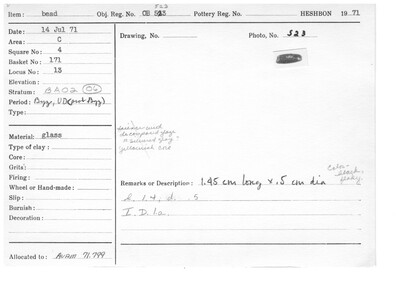 Item: bead Obj. Reg. No. OB 523 Pottery Reg. No. HESHBON 1971
523
Date: 14 Jul 71
Area: C
Square No: 4
Basket No: 171
Locus No: 13
Elevation:
Stratum:
Period: Byz, UD
Type:
Drawing, No. Photo, No. 523
Material: glass
Type of clay:
Core:
Grits:
Firing:
Wheel or Hand-made:
Slip:
Burnish:
Decoration:
Remarks or Description: 1.45 cm long x .5 cm dia
I. D. 1a.
Allocated to: AUAM 71.799